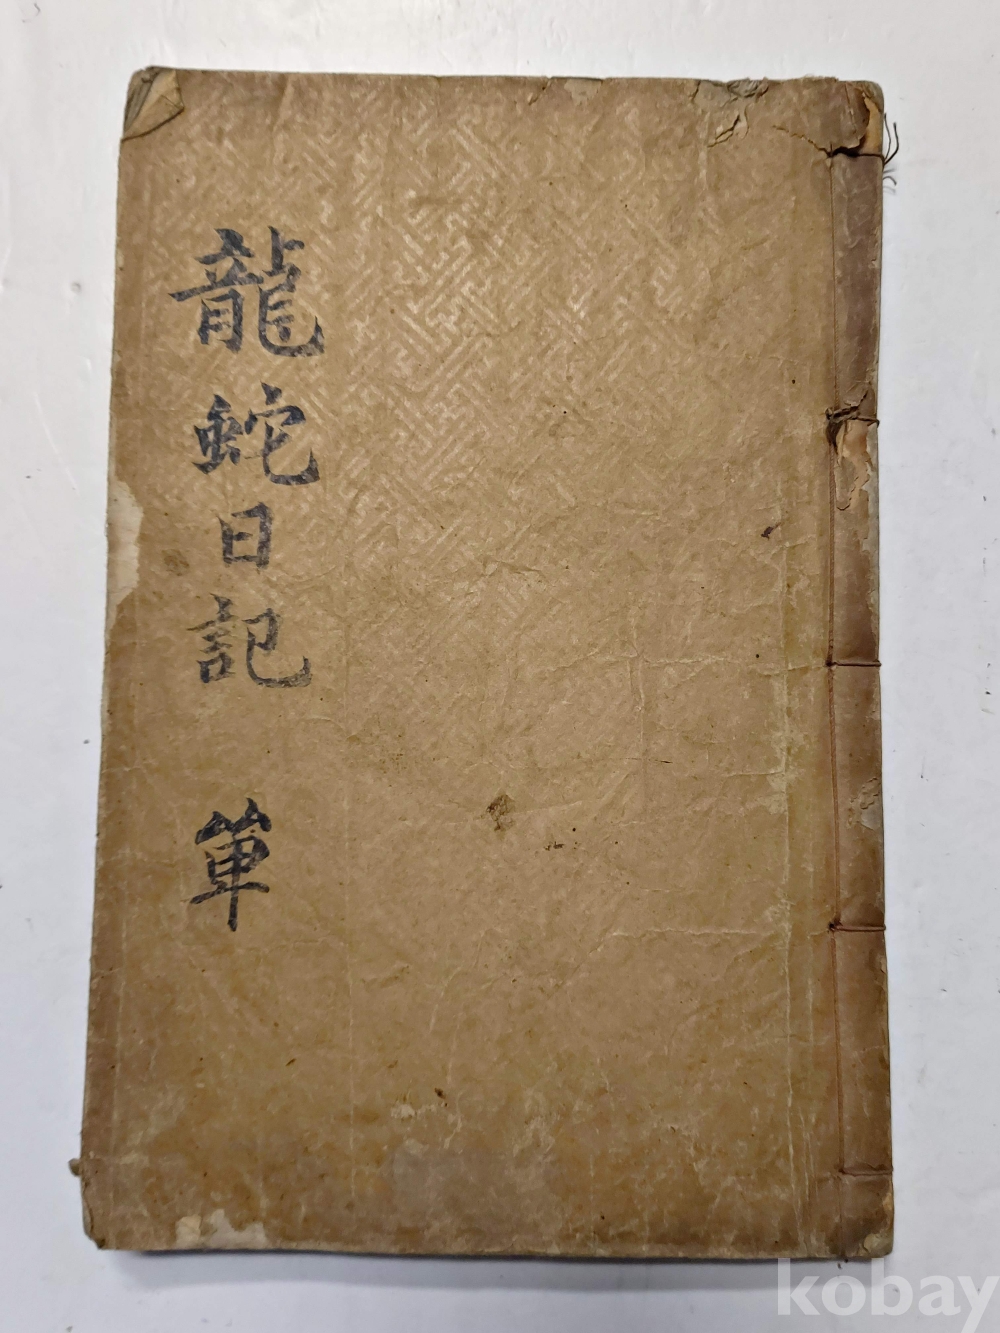 龍蛇日記 單
kobay